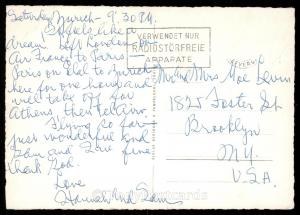 Saturday Zurich - 9.30 P.M.
like a
dream. Left London on
Air France to Paris
Paris on El al to Zurich
here for one hour and
will take off for
Athens, then tel aviv.
Flying so far
just wonderful and
Sam and I are fine
thank God.
Love
Hannah and Sam
VERWENDET NUR
RADIOSTÖRFREIE
APPARATE
Mr and Mrs Moe Levin
1825 Foster St
Brooklyn
N.Y.
U.S.A.